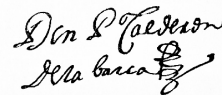 Don P Calderon
de la barca